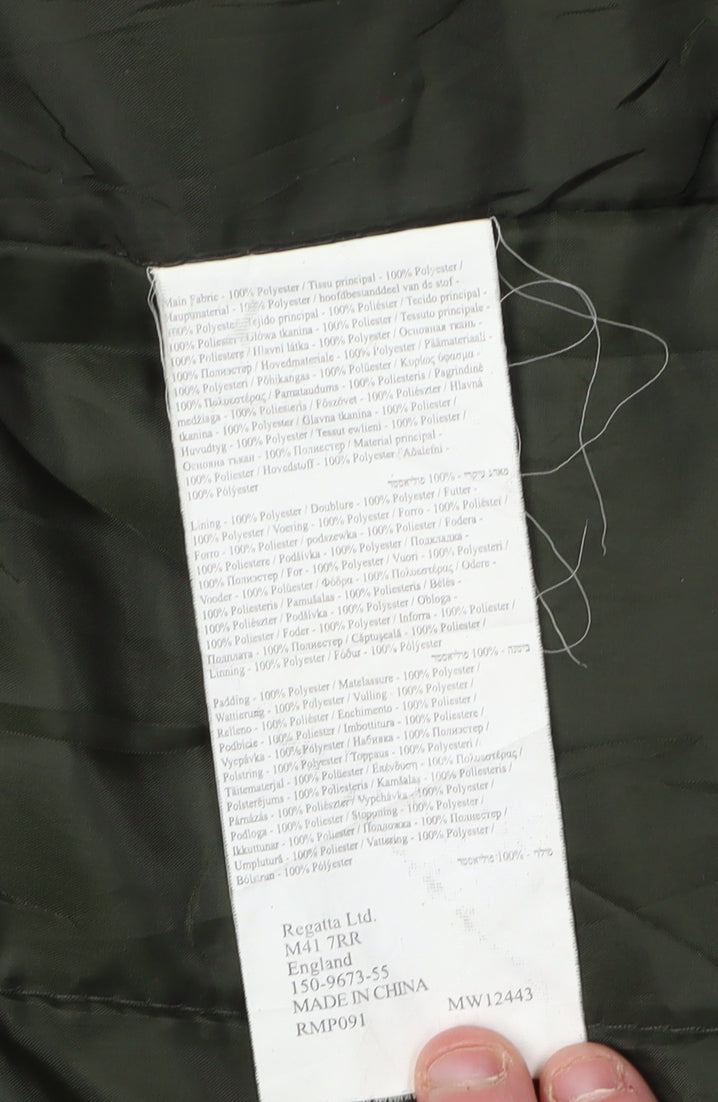 Main Fabric - 100% Polyester / Tissu principal - 100% Polyester /
Hauptmaterial - 100% Polyester / hoofdbestanddeel van de stof -
100% Polyester / Tejido principal - 100% Poliéster / Tecido principal -
100% Poliéster / Główa tkanina - 100% Poliester / Tessuto principale -
100% Poliestere / Hlavní látka - 100% Polyester / Основная ткань -
100% Полиэстер / Hovedmateriale - 100% Polyester / Päämateriaali -
100% Polyesteri / Põhikangas - 100% Polüester / Κυρίως ύφασμα -
100% Πολυεστέρας / Pamataudums - 100% Poliesteris / Pagrindinė
medžiaga - 100% Poliesteris / Főszövet - 100% Poliészter / Hlavná
tkanina - 100% Polyester / Glavna tkanina - 100% Poliester /
Huvudtyg - 100% Polyester / Tessut ewlieni - 100% Poliester /
Основна тъкан - 100% Полиестер / Material principal -
100% Poliester / Hovedstoff - 100% Polyester / Aðalefni -
100% Pólýester
מארג עיקרי - 100% פוליאסטר
Lining - 100% Polyester / Doublure - 100% Polyester / Futter -
100% Polyester / Voering - 100% Polyester / Forro - 100% Poliéster /
Forro - 100% Poliéster / podszewka - 100% Poliester / Fodera -
100% Poliestere / Podšívka - 100% Polyester / Подкладка -
100% Полиэстер / For - 100% Polyester / Vuori - 100% Polyesteri /
Vooder - 100% Polüester / Φόδρα - 100% Πολυεστέρας / Odere -
100% Poliesteris / Pamušalas - 100% Poliesteris / Bélés -
100% Poliészter / Podšívka - 100% Polyester / Obloga -
100% Poliester / Foder - 100% Polyester / Inforra - 100% Poliester /
Подплата - 100% Полиестер / Căptuşeală - 100% Poliester /
Linning - 100% Polyester / Fóður - 100% Pólýester
ביטנה - 100% פוליאסטר
Padding - 100% Polyester / Matelassure - 100% Polyester /
Wattierung - 100% Polyester / Vulling - 100% Polyester /
Relleno - 100% Poliéster / Enchimento - 100% Poliéster /
Podbicie - 100% Poliester / Imbottitura - 100% Poliestere /
Vycpávka - 100% Polyester / Набивка - 100% Полиэстер /
Polstring - 100% Polyester / Toppaus - 100% Polyesteri /
Täitematerjal - 100% Polüester / Επένδυση - 100% Πολυεστέρας /
Polsterējums - 100% Poliesteris / Kamšalas - 100% Poliesteris /
Párnázás - 100% Poliészter / Vypchávka - 100% Polyester /
Podloga - 100% Poliester / Stoppning - 100% Polyester /
Ikkuttunar - 100% Poliester / Подложка - 100% Полиестер /
Umplutură - 100% Poliester / Vattering - 100% Polyester /
Bólstrun - 100% Pólýester
מילוי - 100% פוליאסטר
Regatta Ltd.
M41 7RR
England
150-9673-55
MADE IN CHINA
RMP091 MW12443